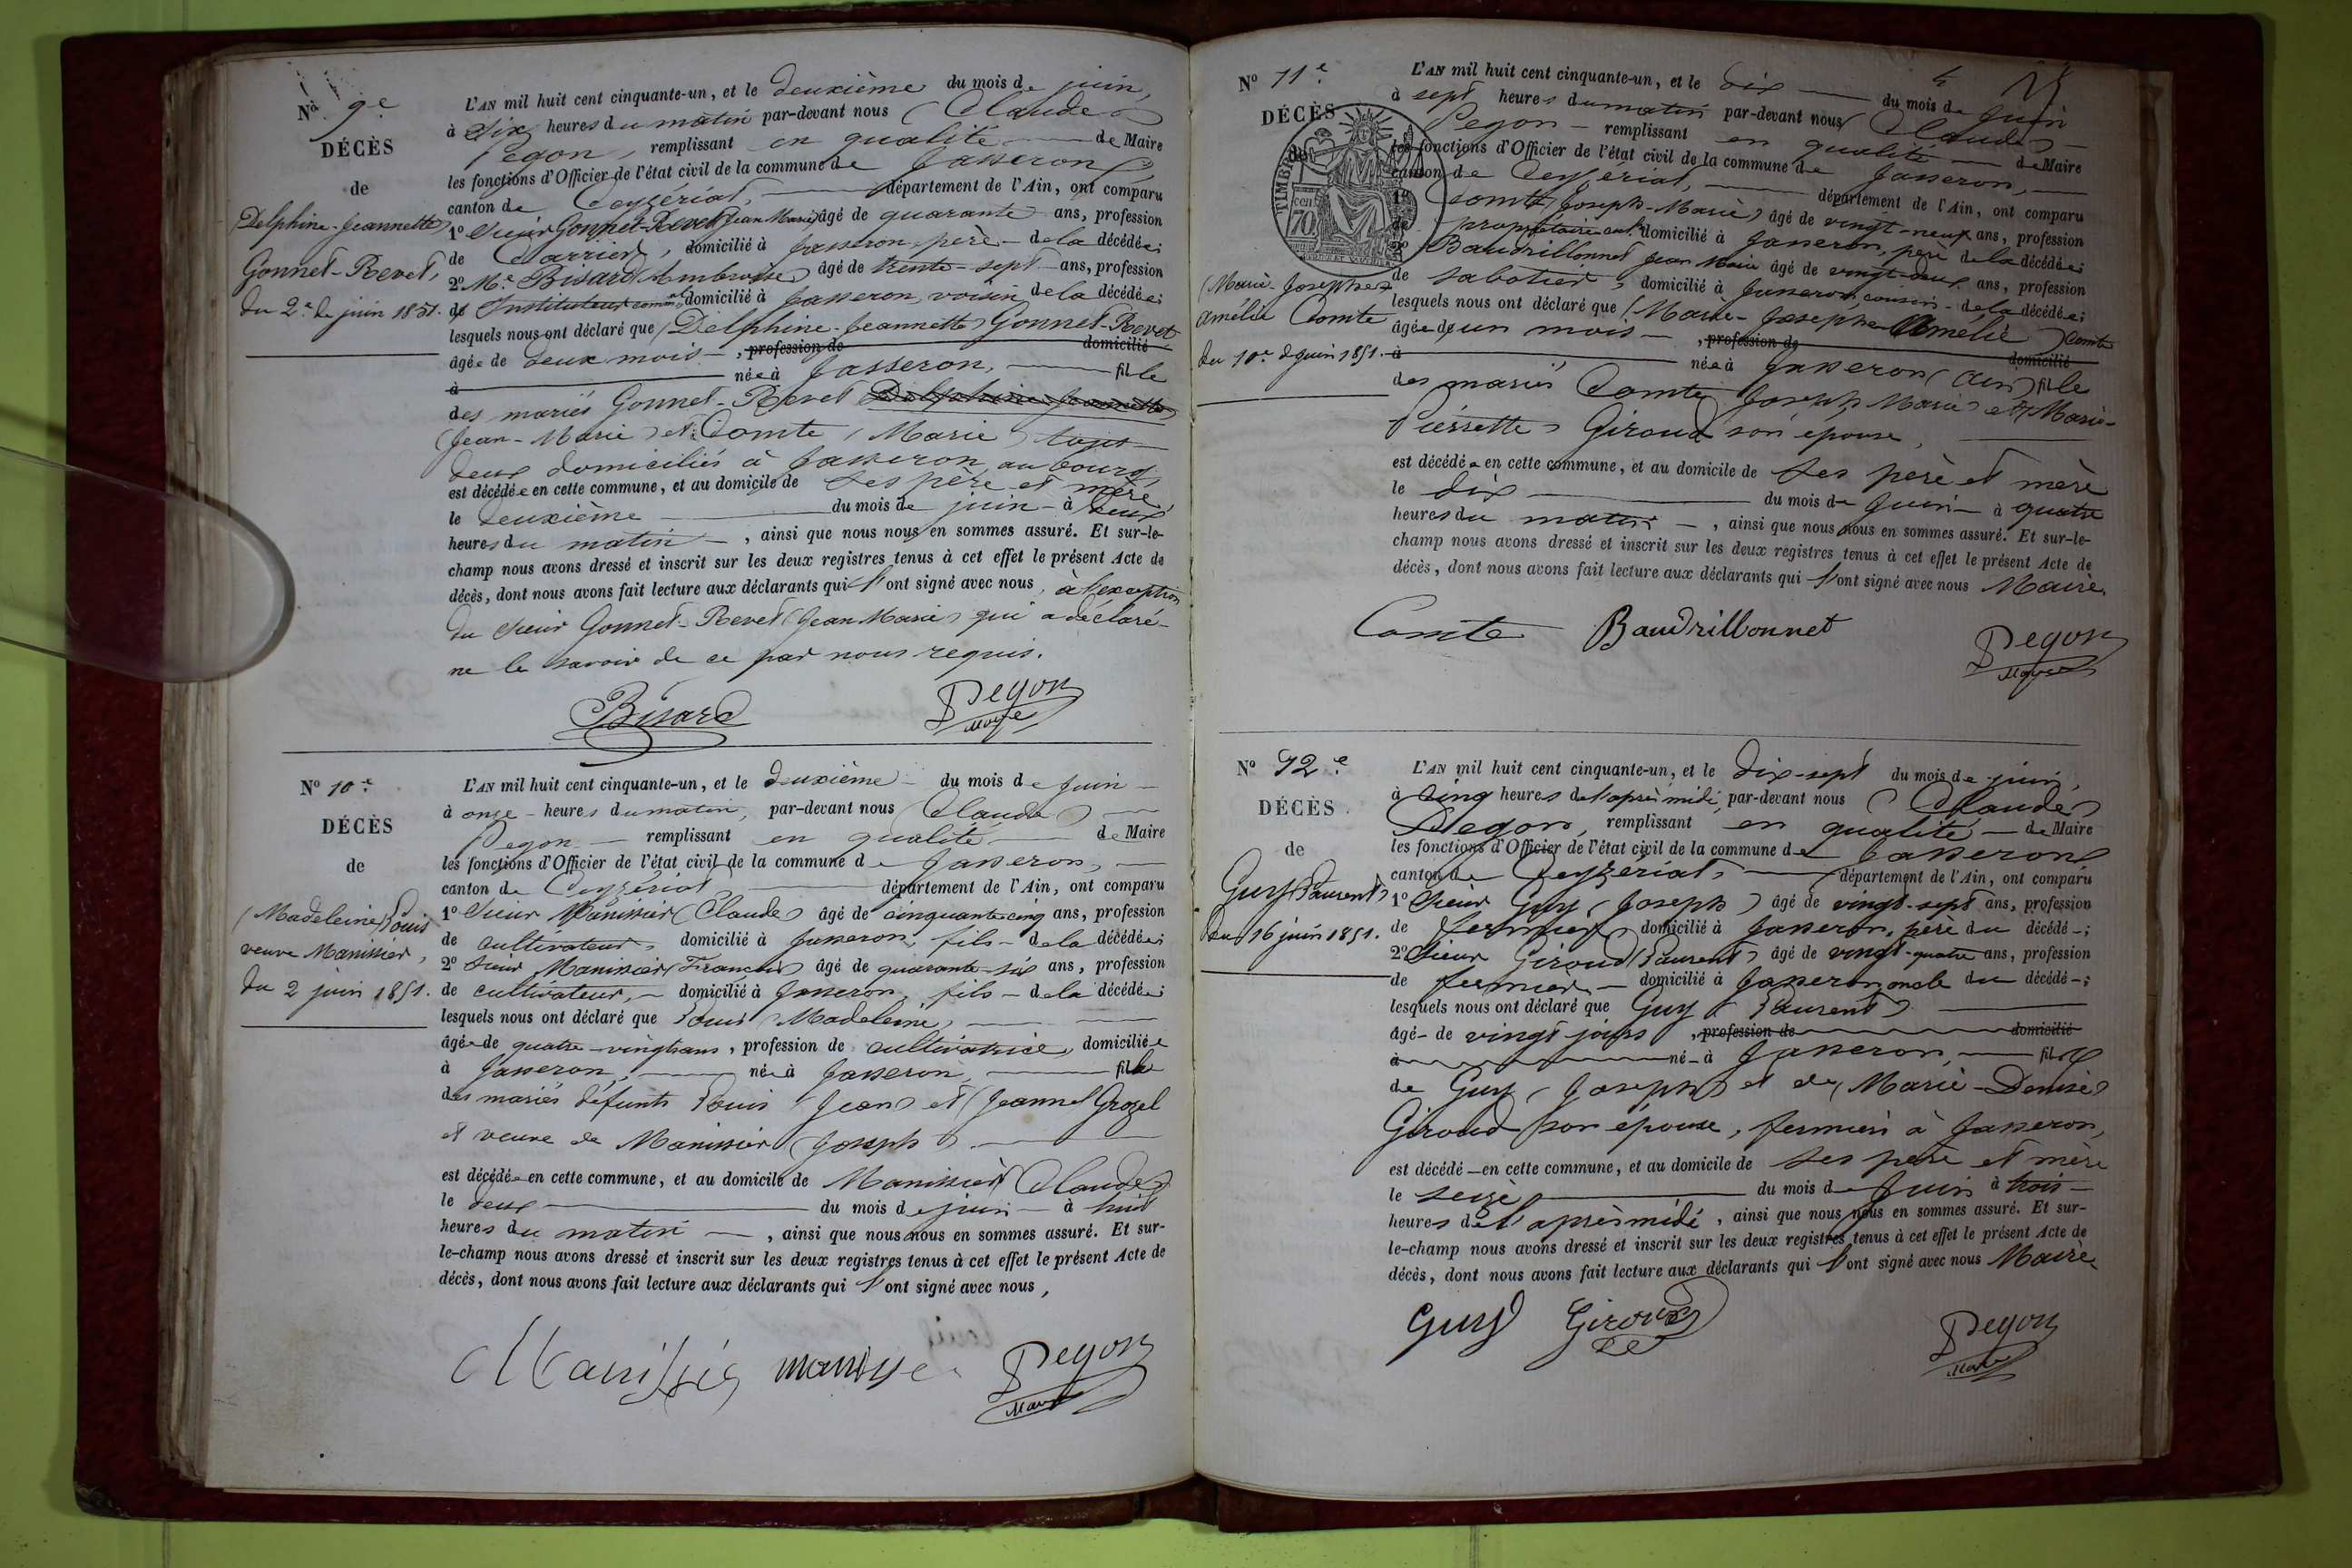 Nº 9e
DÉCÈS
de
(Delphine-Jeannette)
Gonnet-Revet,
du 2e de juin 1851.
L'AN mil huit cent cinquante-un, et le deuxième du mois de juin,
à six heures du matin par-devant nous (Claude)
Pegon, remplissant en qualité de Maire
les fonctions d'Officier de l'état civil de la commune de Jasseron,
canton de Ceyzériat, département de l'Ain, ont comparu
1º Sieur Gonnet-Revet (Jean Marie) âgé de quarante ans, profession
de Carrier, domicilié à Jasseron, père de la décédée;
2º Mr Bisard (Ambroise) âgé de trente-sept ans, profession
de Instituteur comal domicilié à Jasseron, voisin de la décédée;
lesquels nous ont déclaré que (Delphine-Jeannette) Gonnet-Revet
âgée de deux mois, profession de domicilié
à née à Jasseron, fille
des mariés Gonnet-Revet Delphine Jeannette
(Jean-Marie) et Comte (Marie) tous
deux domiciliés à Jasseron, au bourg,
est décédée en cette commune, et au domicile de ses père et mère
le deuxième du mois de juin à deux
heures du matin, ainsi que nous nous en sommes assuré. Et sur-le-
champ nous avons dressé et inscrit sur les deux registres tenus à cet effet le présent Acte de
décès, dont nous avons fait lecture aux déclarants qui l'ont signé avec nous, à l'exception
du sieur Gonnet-Revet (Jean Marie) qui a déclaré
ne le savoir de ce par nous requis.
Bisard Pegon
Maire
Nº 10e
DÉCÈS
de
(Madeleine) Louis
veuve Manissier,
du 2 juin 1851.
L'AN mil huit cent cinquante-un, et le deuxième du mois de juin
à onze heures du matin, par-devant nous (Claude)
Pegon remplissant en qualité de Maire
les fonctions d'Officier de l'état civil de la commune de Jasseron,
canton de Ceyzériat département de l'Ain, ont comparu
1º Sieur Manissier (Claude) âgé de cinquante cinq ans, profession
de cultivateur, domicilié à Jasseron, fils de la décédée;
2º Sieur Manissier (François) âgé de quarante-six ans, profession
de cultivateur, domicilié à Jasseron, fils de la décédée;
lesquels nous ont déclaré que Louis (Madeleine)
âgée de quatre-vingts ans, profession de cultivatrice, domiciliée
à Jasseron, née à Jasseron, fille
des mariés défunts Louis (Jean) et (Jeanne) Grozel
et veuve de Manissier (Joseph)
est décédée en cette commune, et au domicile de Manissier (Claude)
le deux du mois de juin à huit
heures du matin, ainsi que nous nous en sommes assuré. Et sur-
le-champ nous avons dressé et inscrit sur les deux registres tenus à cet effet le présent Acte de
décès, dont nous avons fait lecture aux déclarants qui l'ont signé avec nous,
Manissié Pegon
Maire
Nº 11e
DÉCÈS
de
TIMBRE
70 cen.
(Marie-Josephe
Amélie) Comte
du 10e de juin 1851.
L'AN mil huit cent cinquante-un, et le dix du mois de juin
à sept heures du matin par-devant nous (Claude)
Pegon remplissant en qualité de Maire
les fonctions d'Officier de l'état civil de la commune de Jasseron,
canton de Ceyzériat, département de l'Ain, ont comparu
1º Comte (Joseph-Marie) âgé de vingt-neuf ans, profession
de propriétaire cultr domicilié à Jasseron, père de la décédée;
2º Baudrillonnet Jean Marie âgé de vingt-deux ans, profession
de sabotier, domicilié à Jasseron, cousin de la décédée;
lesquels nous ont déclaré que (Marie-Josephe Amélie) Comte
âgée de un mois, profession de domicilié
à née à Jasseron (Ain) fille
des mariés Comte Joseph Marie et (Marie-
Pierrette) Giroud son épouse,
est décédée en cette commune, et au domicile de ses père et mère
le dix du mois de juin à quatre
heures du matin, ainsi que nous nous en sommes assuré. Et sur-le-
champ nous avons dressé et inscrit sur les deux registres tenus à cet effet le présent Acte de
décès, dont nous avons fait lecture aux déclarants qui l'ont signé avec nous Maire.
Comte Baudrillonnet Pegon
Maire
Nº 12e
DÉCÈS
de
Guy (Laurent)
du 16 juin 1851.
L'AN mil huit cent cinquante-un, et le dix-sept du mois de juin,
à cinq heures de l'après midi, par-devant nous (Claude)
Pegon, remplissant en qualité de Maire
les fonctions d'Officier de l'état civil de la commune de Jasseron
canton de Ceyzériat, département de l'Ain, ont comparu
1º Sieur Guy (Joseph) âgé de vingt-sept ans, profession
de fermier, domicilié à Jasseron, père du décédé;
2º Sieur Giroud (Laurent) âgé de vingt-quatre ans, profession
de fermier domicilié à Jasseron, oncle du décédé;
lesquels nous ont déclaré que Guy (Laurent)
âgé de vingt jours, profession de domicilié
à né à Jasseron, fils
de Guy (Joseph) et de (Marie-Denise)
Giroud son épouse, fermiers à Jasseron,
est décédé en cette commune, et au domicile de ses père et mère
le seize du mois de juin à trois
heures de l'après midi, ainsi que nous nous en sommes assuré. Et sur-
le-champ nous avons dressé et inscrit sur les deux registres tenus à cet effet le présent Acte de
décès, dont nous avons fait lecture aux déclarants qui l'ont signé avec nous Maire.
Guy Giroud Pegon
Maire